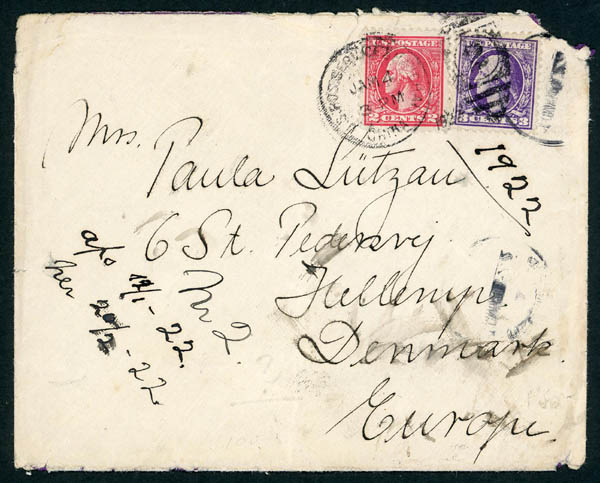 U.S. POSTAGE
2 CENTS 2
U.S. POSTAGE
3 CENTS 3
U.S. POS. SERVICE
JAN 4
CHINA
1922
Mrs.
Paula Lützau
6 St. Pedersvej
Hellerup.
Denmark.
Europe.
No 2.
afs 17/1-22.
her 20/2-22.